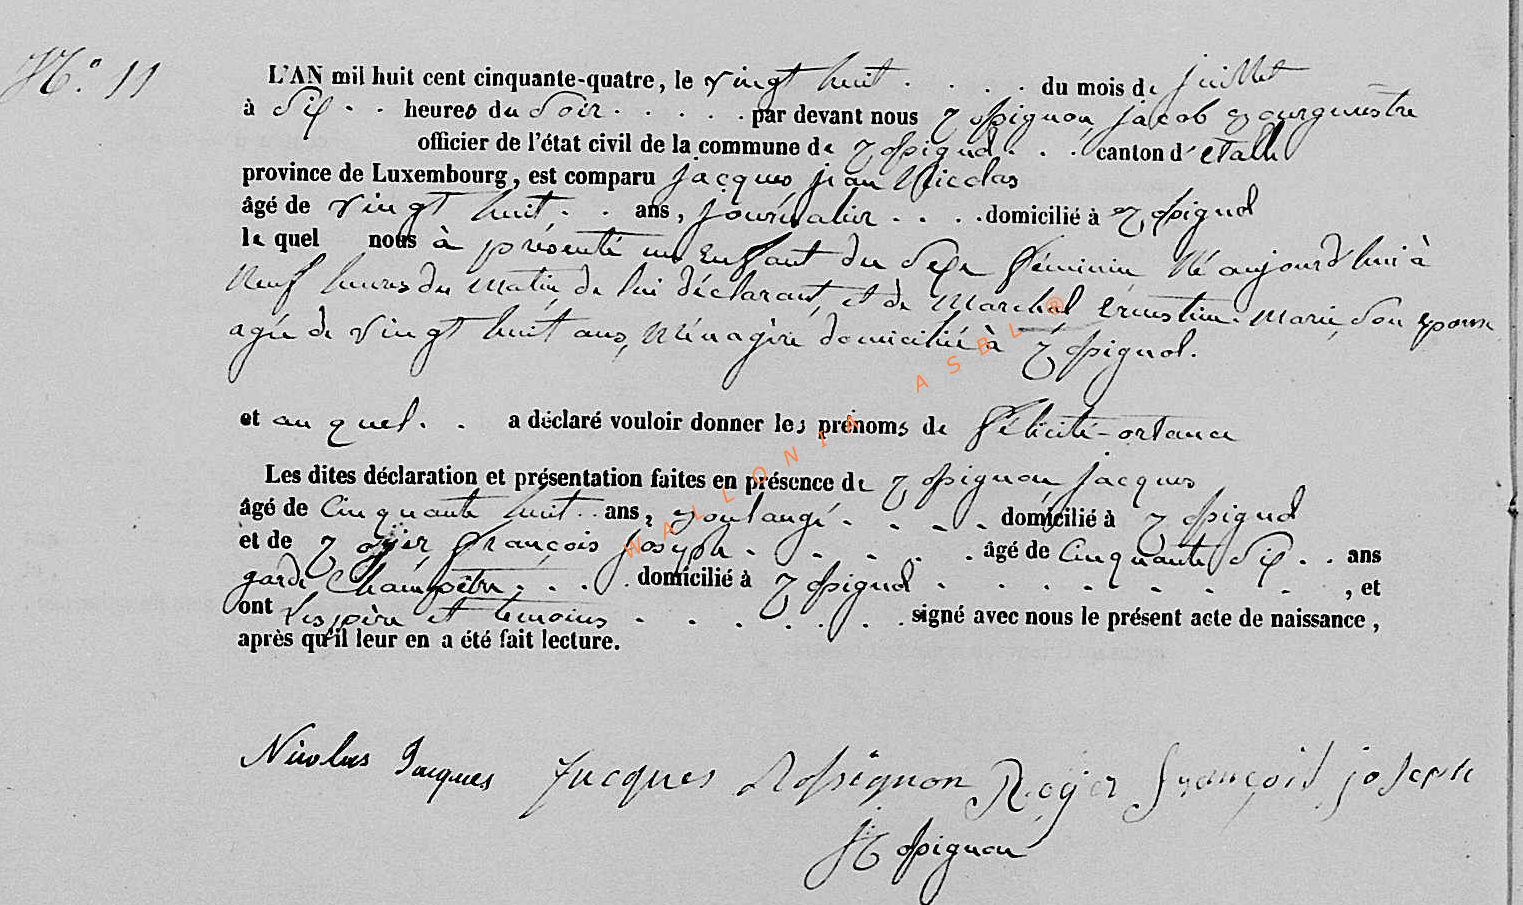 N.° 11
L'AN mil huit cent cinquante-quatre, le vingt huit . . . . du mois de juillet
à Six . . heures du Soir . . . . . par devant nous Rossignon, jacob Bourguestre
officier de l'état civil de la commune de Rossignol . . . canton d'etalle
province de Luxembourg, est comparu jacques jean Nicolas
âgé de vingt huit . . ans, journalier . . . . domicilié à Rossignol
le quel nous à présenté un Enfant du Sexe féminin Né aujourd'hui à
Neuf heures du Matin, de lui déclarant, et de Marchal Ernestine Marie, Son Epouse
agée de Vingt huit ans, Ménagère domicilié à Rossignol.
et au quel . . a déclaré vouloir donner les prénoms de félicité-ortance
Les dites déclaration et présentation faites en présence de Rossignon jacques
âgé de Cinquante huit . . ans, Boulangé . . . . domicilié à Rossignol
et de Rojer françois joseph . . . . . . âgé de Cinquante Six . . ans
garde Champêtre . . . . domicilié à Rossignol . . . . . . . , et
ont les père et temoins . . . . . . . signé avec nous le présent acte de naissance,
après qu'il leur en a été fait lecture.
Nicolas Jacques Jacques Rossignon Rojer françois joseph
J Rossignon
WALLONIA ASBL ®